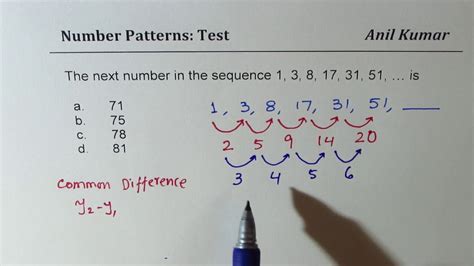 Number Patterns: Test Anil Kumar
The next number in the sequence 1, 3, 8, 17, 31, 51, ... is
a. 71
b. 75
c. 78
d. 81
1, 3, 8, 17, 31, 51, ___
2 5 9 14 20
3 4 5 6
Common Difference
y2-y1